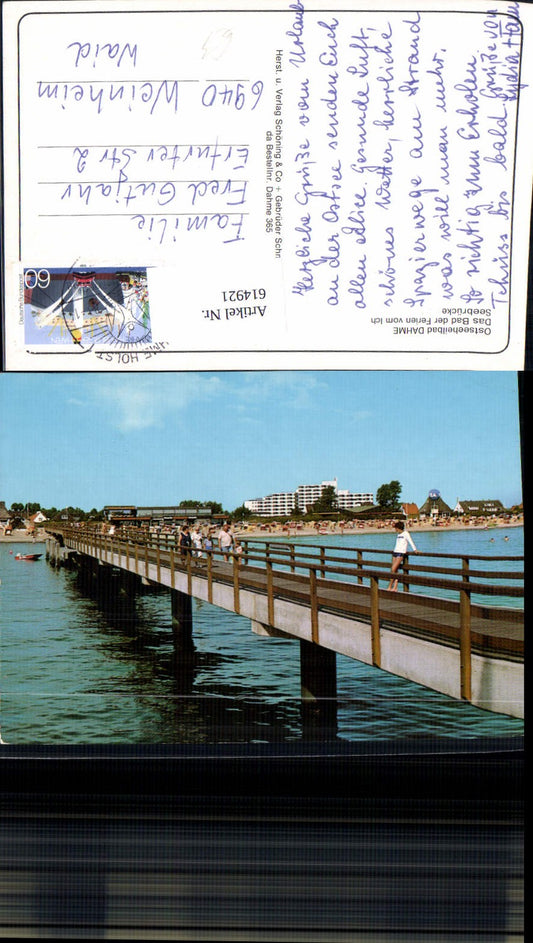 Ostseeheilbad DAHME
Das Bad der Ferien vom Ich
Seebrücke
Herzliche Grüße vom Urlaub
an der Ostsee senden Euch
allen
Gesunde Luft,
schönes Wetter, herrliche
Spazierwege am Strand
was will man mehr.
So richtig zum Erholen.
Tschüss bis bald Grüße von
Lydia +
Herst. u. Verlag Schöning & Co + Gebrüder Schn
da Bestellnr. Dahme 365
Artikel Nr.
614921
60
Deutsche Bundespost
HOLST
Familie
Fred Gutjahr
Erfurter Str 2
6940 Weinheim
Waid